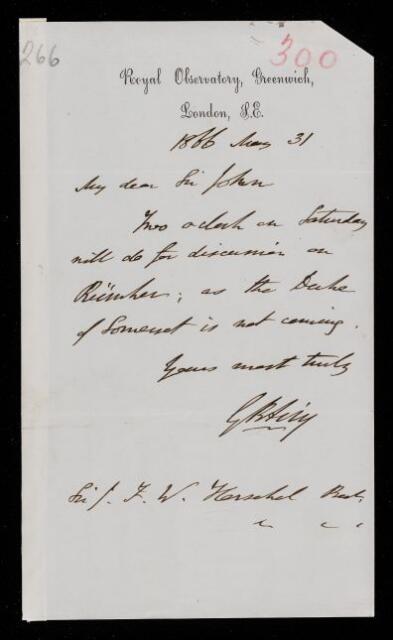 266
300
Royal Observatory, Greenwich,
London, S.E.
1866 May 31
My dear Sir John
Two o'clock on Saturday
will do for discussion on
Rümker; as the Duke
of Somerset is not coming.
Yours most truly
G B Airy
Sir J. F. W. Herschel Bart.
" " "